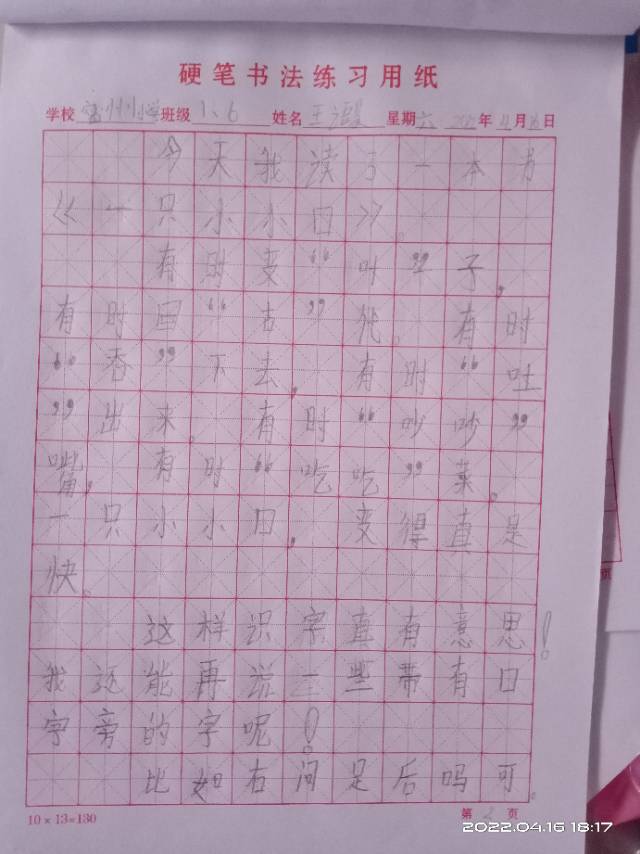 硬笔书法练习用纸
学校 州小学 班级 1、6 姓名 王 星期六 年 月 日
今天我读了一本书
《一只小小口》。
有时变“叶”子,
有时回“古”代。有时
“吞”下去,有时“吐
”出来。有时“吵吵”
嘴,有时“吃吃”菜。
一只小小口,变得真是
快。
这样识字真有意思!
我还能再说一些带有口
字旁的字呢!
比如右问是后吗可。
10×13=130
第2页
2022.04.16 18:17
页